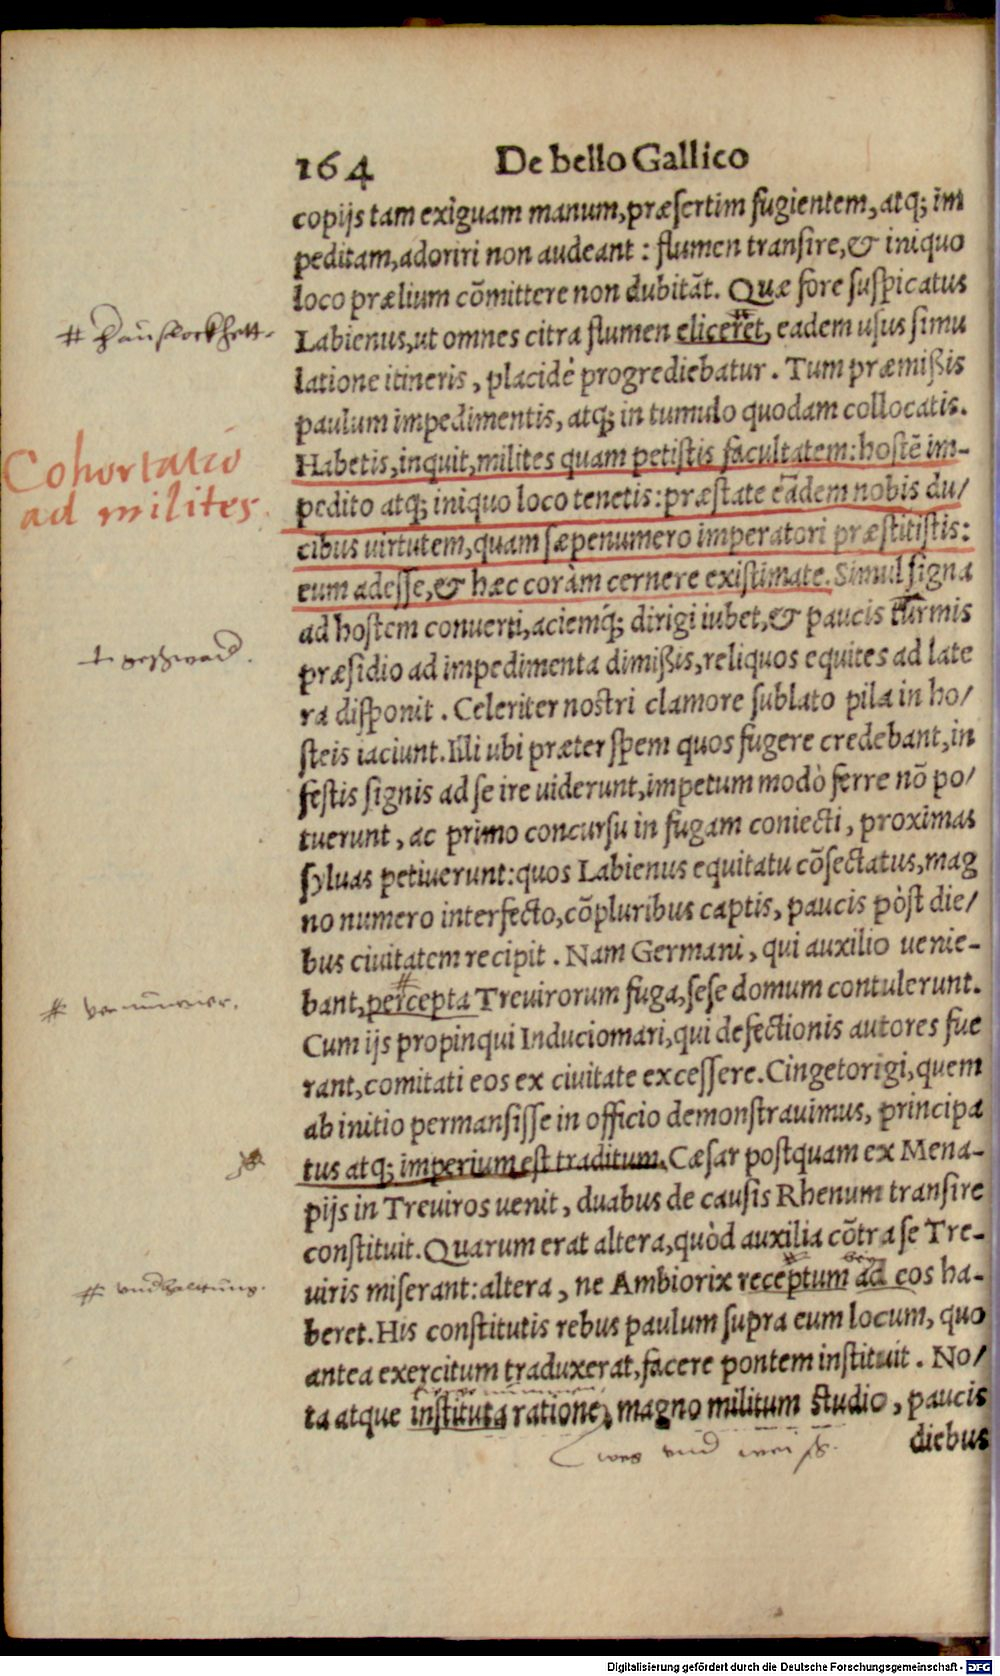 164 De bello Gallico
copijs tam exiguam manum, præsertim fugientem, atq; im
peditam, adoriri non audeant: flumen transire, & iniquo
loco prælium cõmittere non dubitãt. Quæ fore suspicatus
Labienus, ut omnes citra flumen eliceret, eadem usus simu
latione itineris, placidè progrediebatur. Tum præmißis
paulum impedimentis, atq; in tumulo quodam collocatis.
Habetis, inquit, milites quam petistis facultatem: hostẽ im-
pedito atq; iniquo loco tenetis: præstate eãdem nobis du/
cibus virtutem, quam sæpenumero imperatori præstitistis:
eum adesse, & hæc coràm cernere existimate. Simul signa
ad hostem conuerti, aciemq́; dirigi iubet, & paucis turmis
præsidio ad impedimenta dimißis, reliquos equites ad late
ra disponit. Celeriter nostri clamore sublato pila in ho/
steis iaciunt. Illi ubi præter spem quos fugere credebant, in
festis signis ad se ire uiderunt, impetum modò ferre nõ po/
tuerunt, ac primo concursu in fugam coniecti, proximas
syluas petiuerunt: quos Labienus equitatu cõsectatus, mag
no numero interfecto, cõpluribus captis, paucis pòst die/
bus ciuitatem recipit. Nam Germani, qui auxilio uenie-
bant, percepta Treuirorum fuga, sese domum contulerunt.
Cum ijs propinqui Induciomari, qui defectionis autores fue
rant, comitati eos ex ciuitate excessere. Cingetorigi, quem
ab initio permansisse in officio demonstrauimus, principa
tus atq; imperium est traditum. Cæsar postquam ex Mena-
pijs in Treuiros uenit, duabus de causis Rhenum transire
constituit. Quarum erat altera, quòd auxilia cõtra se Tre-
uiris miserant: altera, ne Ambiorix receptum ad eos ha-
beret. His constitutis rebus paulum supra eum locum, quo
antea exercitum traduxerat, facere pontem instituit. No/
ta atque instituta ratione, magno militum studio, paucis
diebus
Cohortatio
ad milites.
weg und weiß.